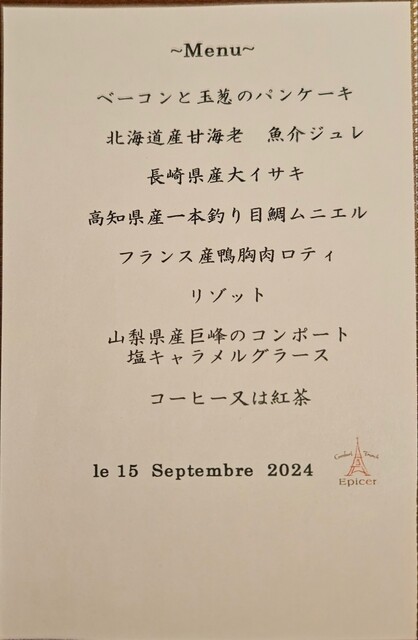 ~Menu~
ベーコンと玉葱のパンケーキ
北海道産甘海老　魚介ジュレ
長崎県産大イサキ
高知県産一本釣り目鯛ムニエル
フランス産鴨胸肉ロティ
リゾット
山梨県産巨峰のコンポート
塩キャラメルグラース
コーヒー又は紅茶
le 15 Septembre 2024
Epicer